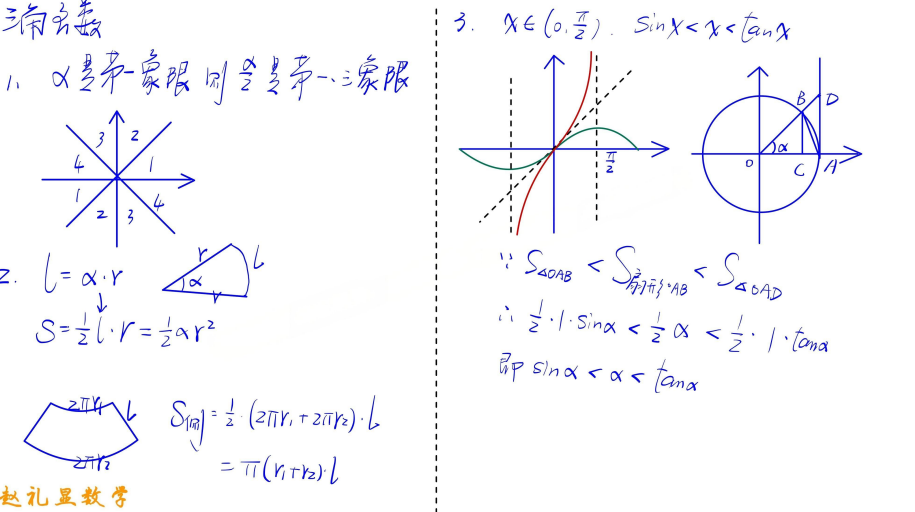 三角函数
1. α是第一象限 则 α/2 是第一、三象限
3 2
4 1
1 4
2 3
2. l = α·r
r l
α
r
S = 1/2 l·r = 1/2 αr²
2πr₁ l
2πr₂
S侧 = 1/2·(2πr₁+2πr₂)·l
= π(r₁+r₂)·l
赵礼显数学
3. x∈(0, π/2). sinx < x < tanx
π/2
B D
O α C A
∵ S△OAB < S扇形AB < S△OAD
∴ 1/2·1·sinα < 1/2 α < 1/2·1·tanα
即 sinα < α < tanα